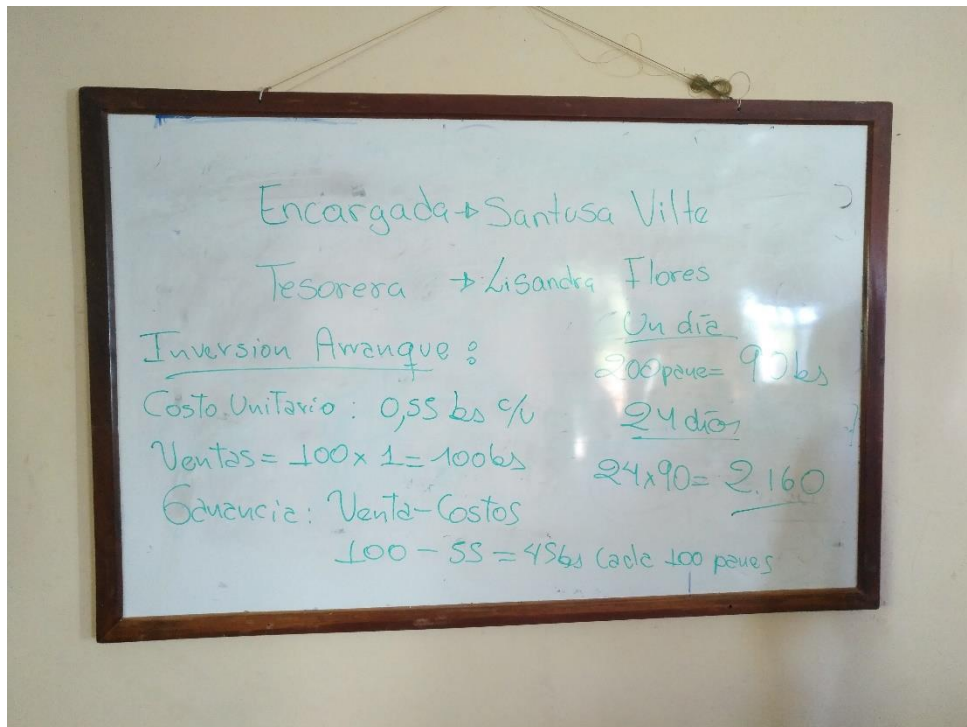 Encargada → Santusa Vilte
Tesorera → Lisandra Flores
Inversion Arranque :
Costo Unitario : 0,55 bs c/u
Ventas = 100 x 1 = 100bs
Ganancia : Venta - Costos
100 - 55 = 45bs Cada 100 panes
Un día
200 pane = 90 bs
24 días
24 x 90 = 2.160